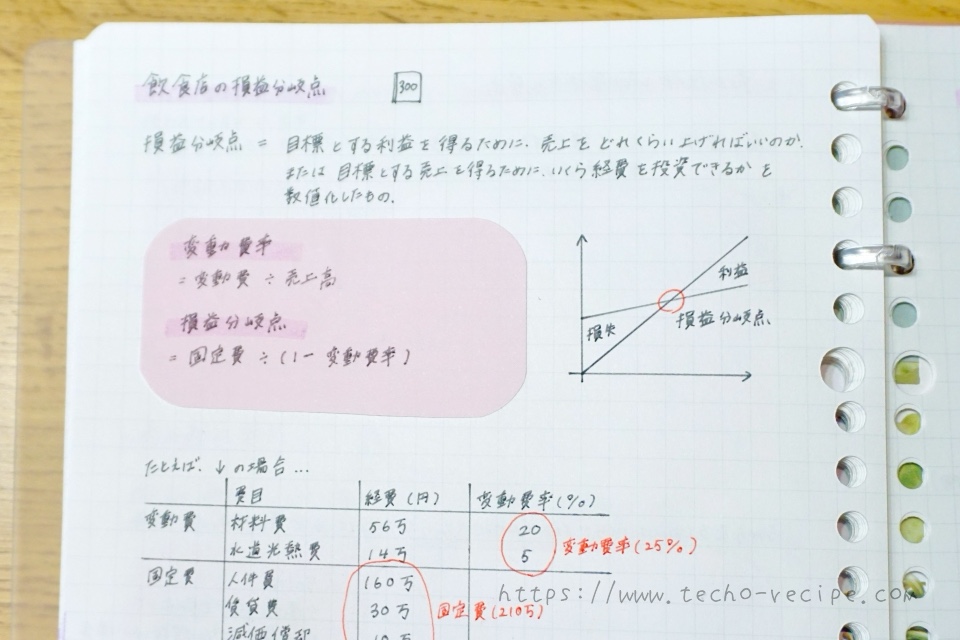 飲食店の損益分岐点
300
損益分岐点 = 目標とする利益を得るために、売上をどれくらい上げればいいのか、
または目標とする売上を得るために、いくら経費を投資できるかを
数値化したもの。
変動費率
= 変動費 ÷ 売上高
損益分岐点
= 固定費 ÷ (1 − 変動費率)
利益
損失
損益分岐点
たとえば、↓の場合...
費目 経費(円) 変動費率(%)
変動費 材料費 56万 20
水道光熱費 14万 5 変動費率(25%)
固定費 人件費 160万
賃貸費 30万 固定費(210万)
減価償却
https://www.techo-recipe.com